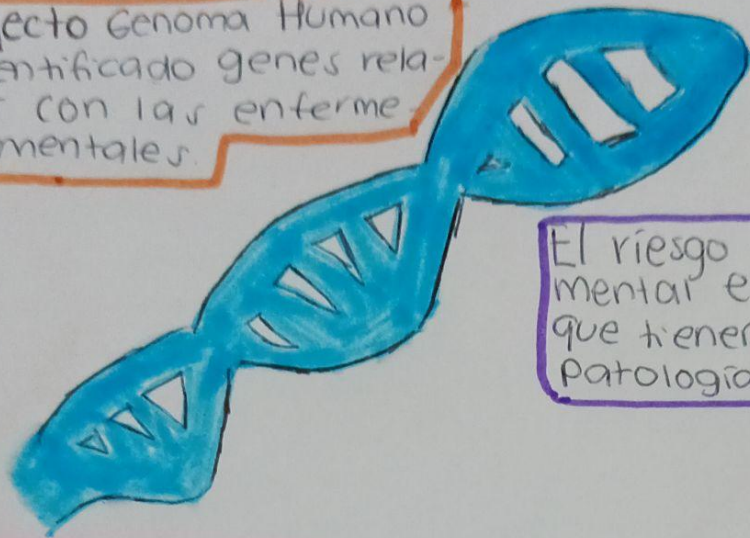 ecto Genoma Humano
entificado genes rela-
con las enferme-
mentales.
El riesgo
mental e
que tiener
patologia